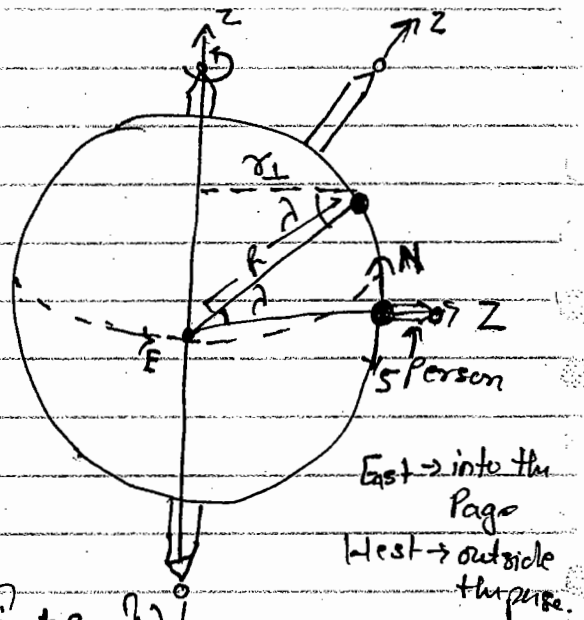 Z
Z
r⊥
λ
R
λ
N
Z
E
S Person
East → into the
Page
West → outside
the page.